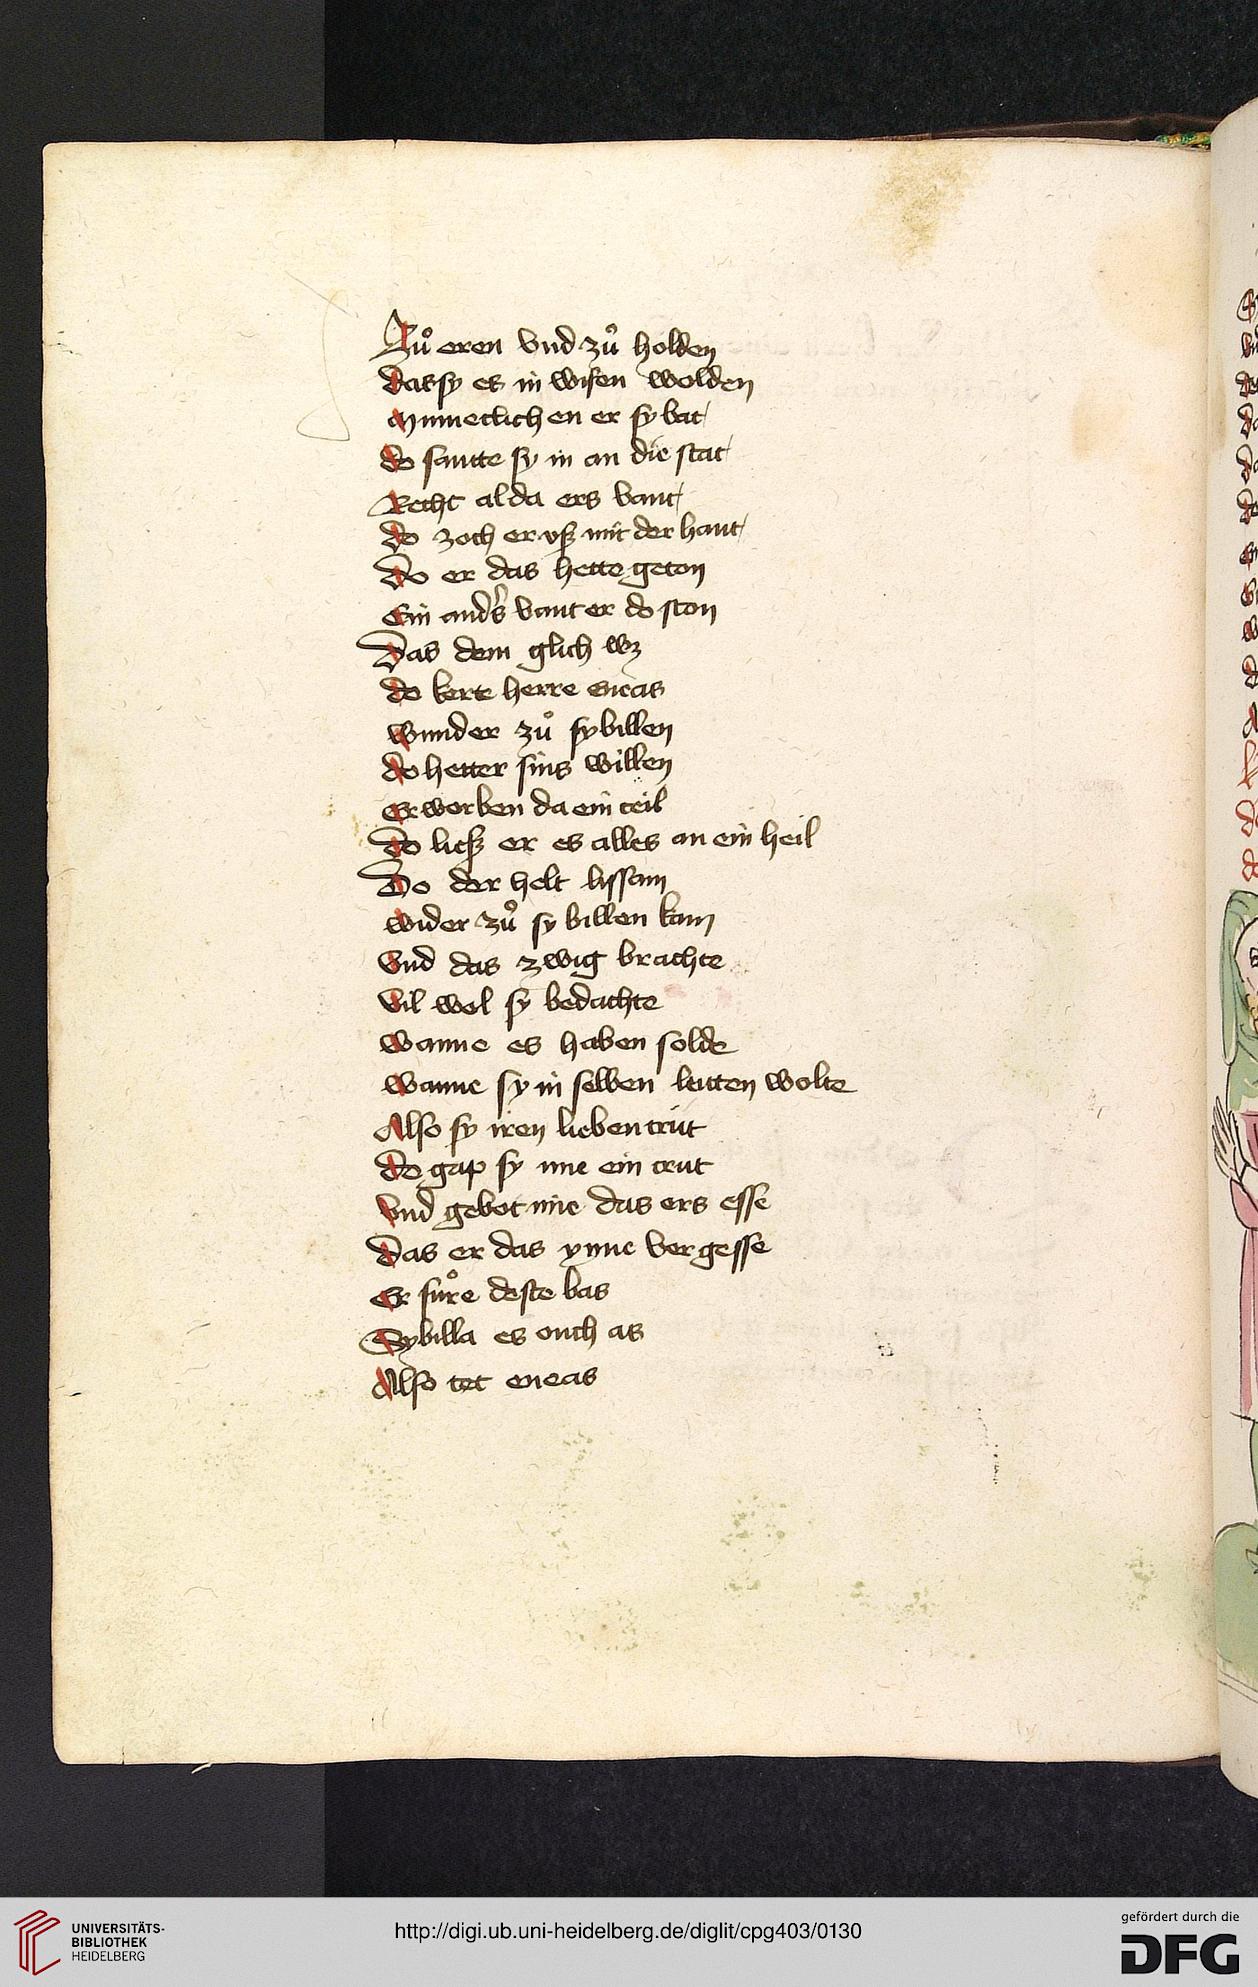 Zuͦ eren vnd zuͦ holden
das sy es in wisen wolden
Minneclich en er sy bat
do santte sy in an die stat
Recht alda ers vant
do zoch er vsz mit der hant
Do er das hette geton
Ein anders vant er do ston
Das dem glich wz
do kerte herre eneas
wunder zuͦ sybillen
do hetter sins willen
Erworben da ein teil
Do liesz er es alles an ein heil
Do der helt lissam
wider zuͦ sybillen kam
vnd das zwig brachte
vil wol sy bedachte
wanne es haben solde
wanne sy in selben leitten wolte
Also sy iren lieben trut
do gap sy ime ein crut
vnd gebot ime das ers esse
Das er das ynne vergesse
Er fuͦre deste bas
Sybilla es ouch as
Also tet eneas
UNIVERSITÄTS-
BIBLIOTHEK
HEIDELBERG
http://digi.ub.uni-heidelberg.de/diglit/cpg403/0130
gefördert durch die
DFG